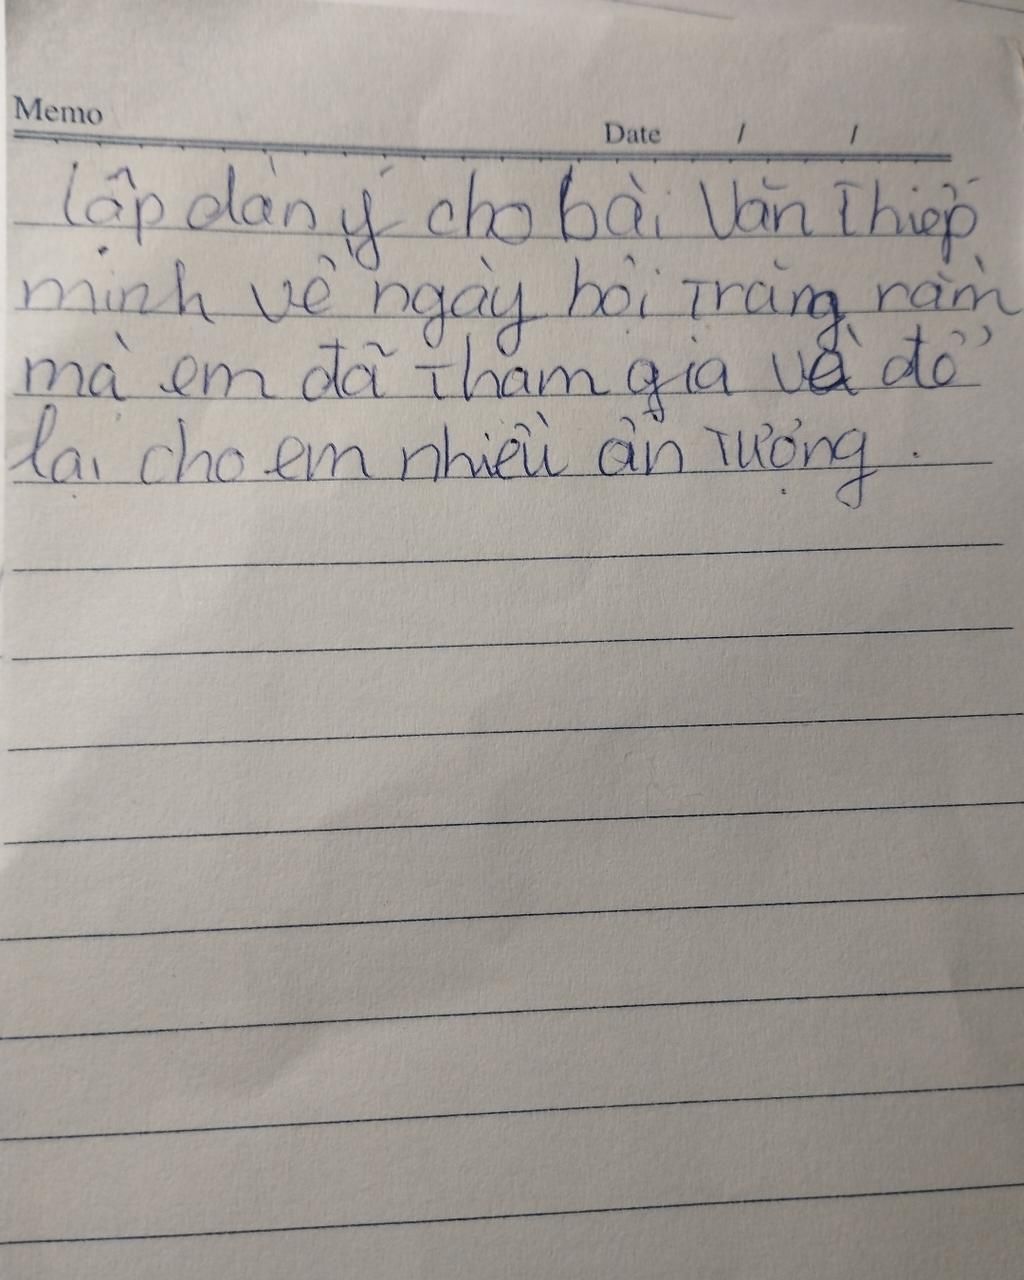 Memo
Date / /
lập dàn ý cho bài văn Thiếp
mịnh về ngày hội Trăng rằm
mà em đã Tham gia và để
lại cho em nhiều ấn Tượng.